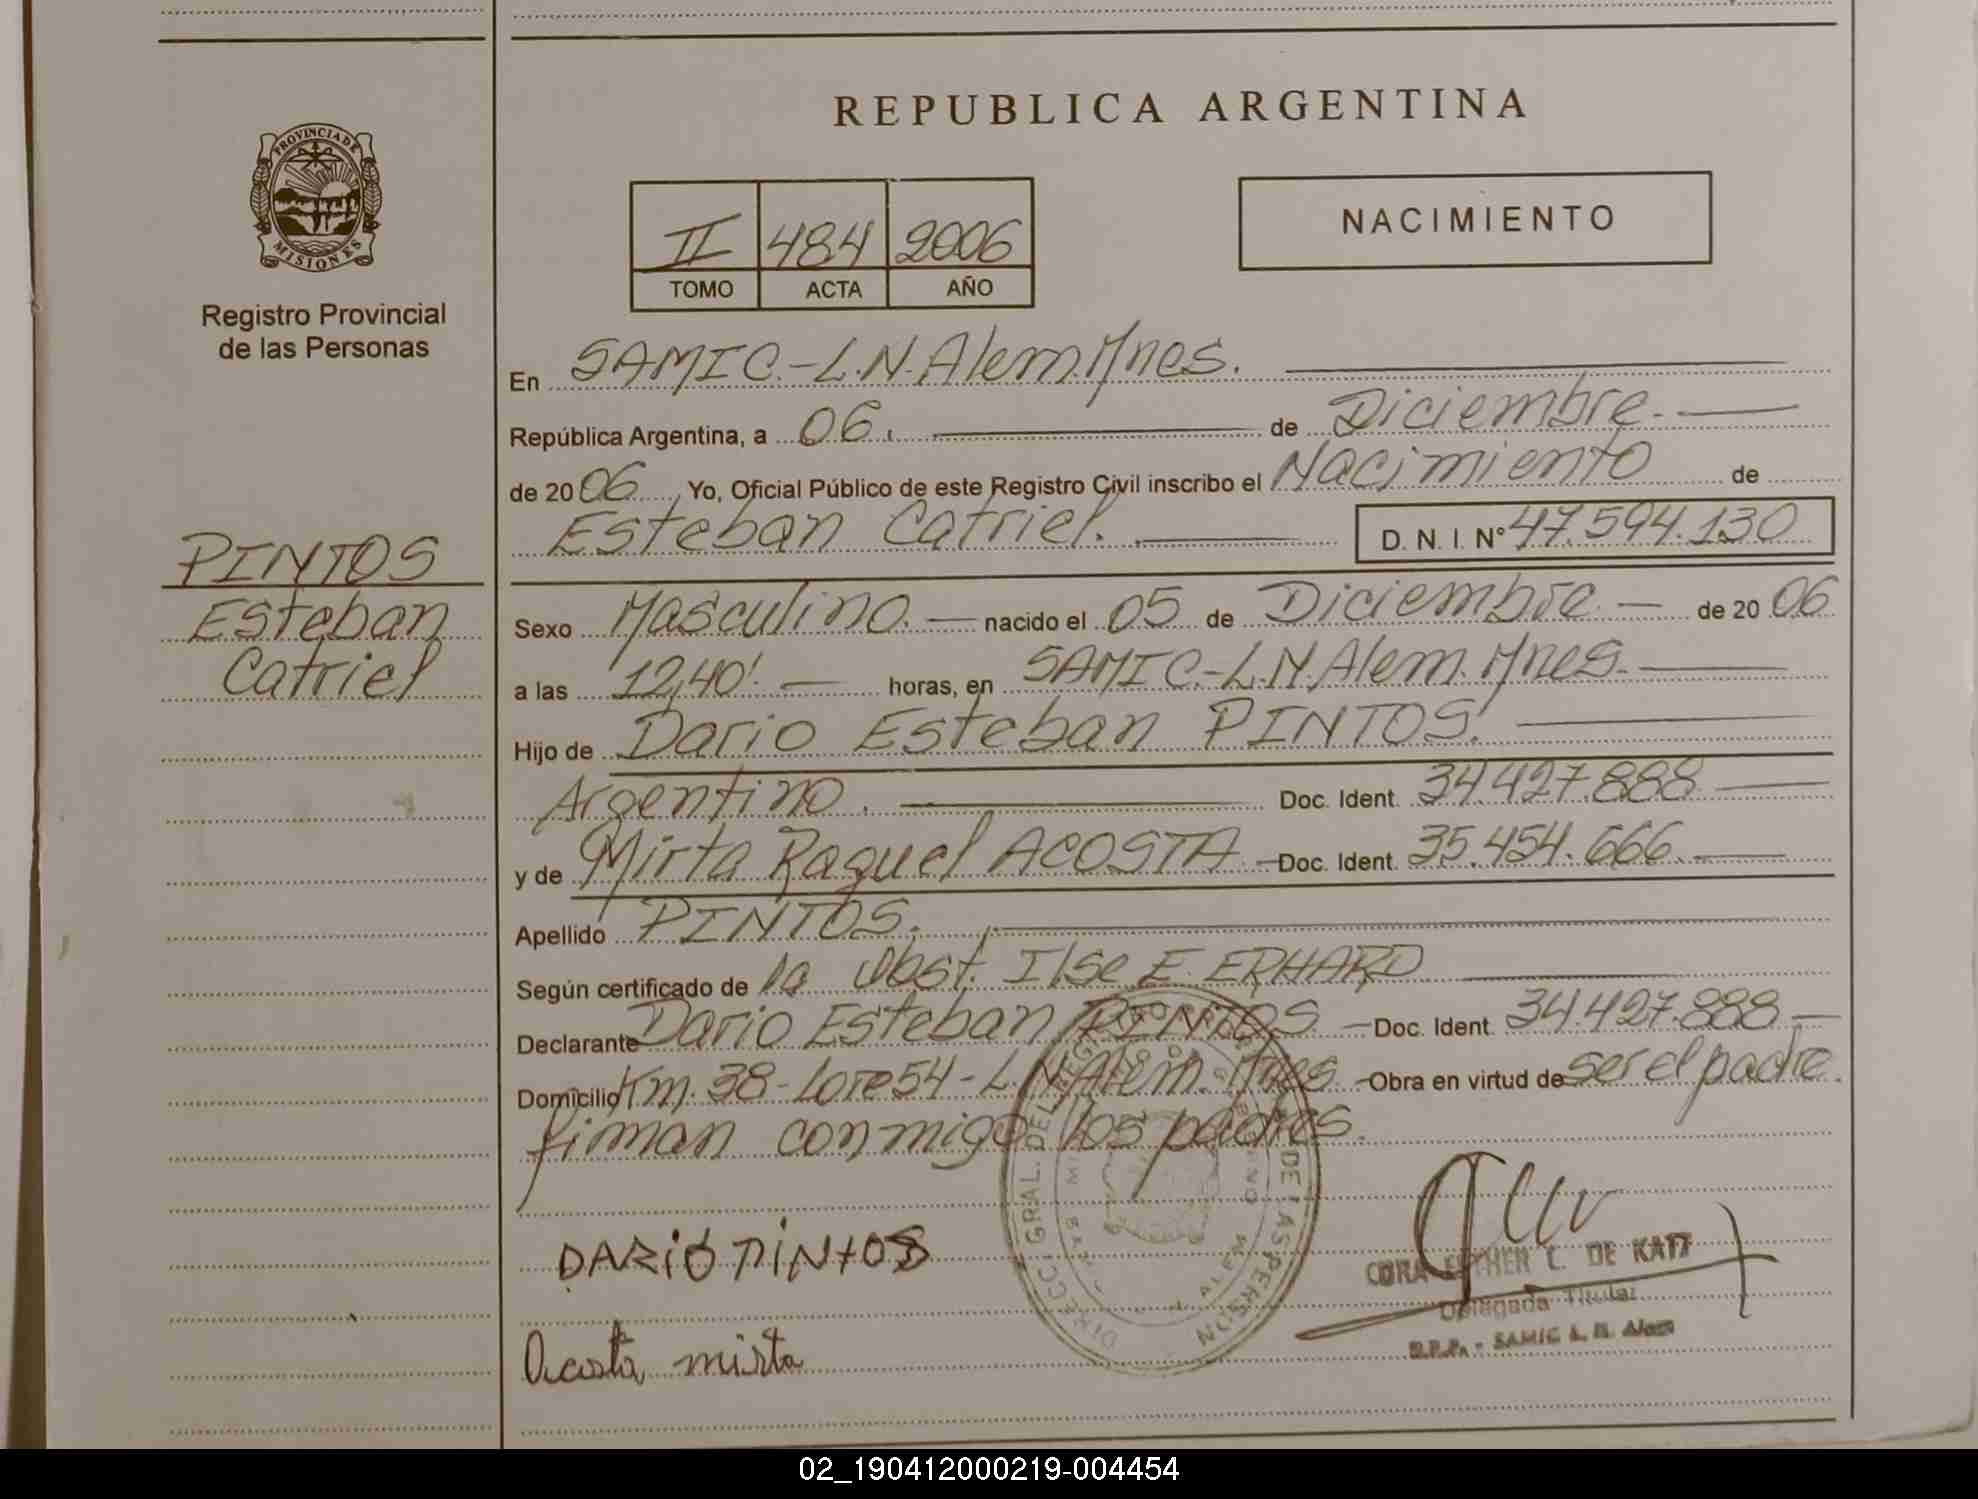 REPUBLICA ARGENTINA
PROVINCIA DE
MISIONES
Registro Provincial
de las Personas
II 484 2006
TOMO ACTA AÑO
NACIMIENTO
En SAMIC.-L.N.Alem.Mnes.
República Argentina, a 06. de Diciembre.
de 2006 Yo, Oficial Público de este Registro Civil inscribo el Nacimiento de
Esteban Catriel. D. N. I. N° 47.594.130
PINTOS
Esteban
Catriel
Sexo Masculino. nacido el 05 de Diciembre. de 2006
a las 12,40'. horas, en SAMIC.-L.N.Alem.Mnes.
Hijo de Dario Esteban PINTOS.
Argentino. Doc. Ident. 34.427.888
y de Mirta Raquel ACOSTA Doc. Ident. 35.454.666.
Apellido PINTOS.
Según certificado de la Obst. Ilse E. ERHARD
Declarante Dario Esteban PINTOS Doc. Ident. 34.427.888
Domicilio Km.38-Lote54-L.N.Alem.Mnes Obra en virtud de ser el padre.
firman conmigo los padres.
DIRECC. GRAL. DEL REGISTRO DE LAS PERSON
ALEM
DARIO PINTOS
Acosta mirta
ESTHER C. DE KATT
Delegada Titular
R.P.P. - SAMIC L. N. Alem
02_190412000219-004454